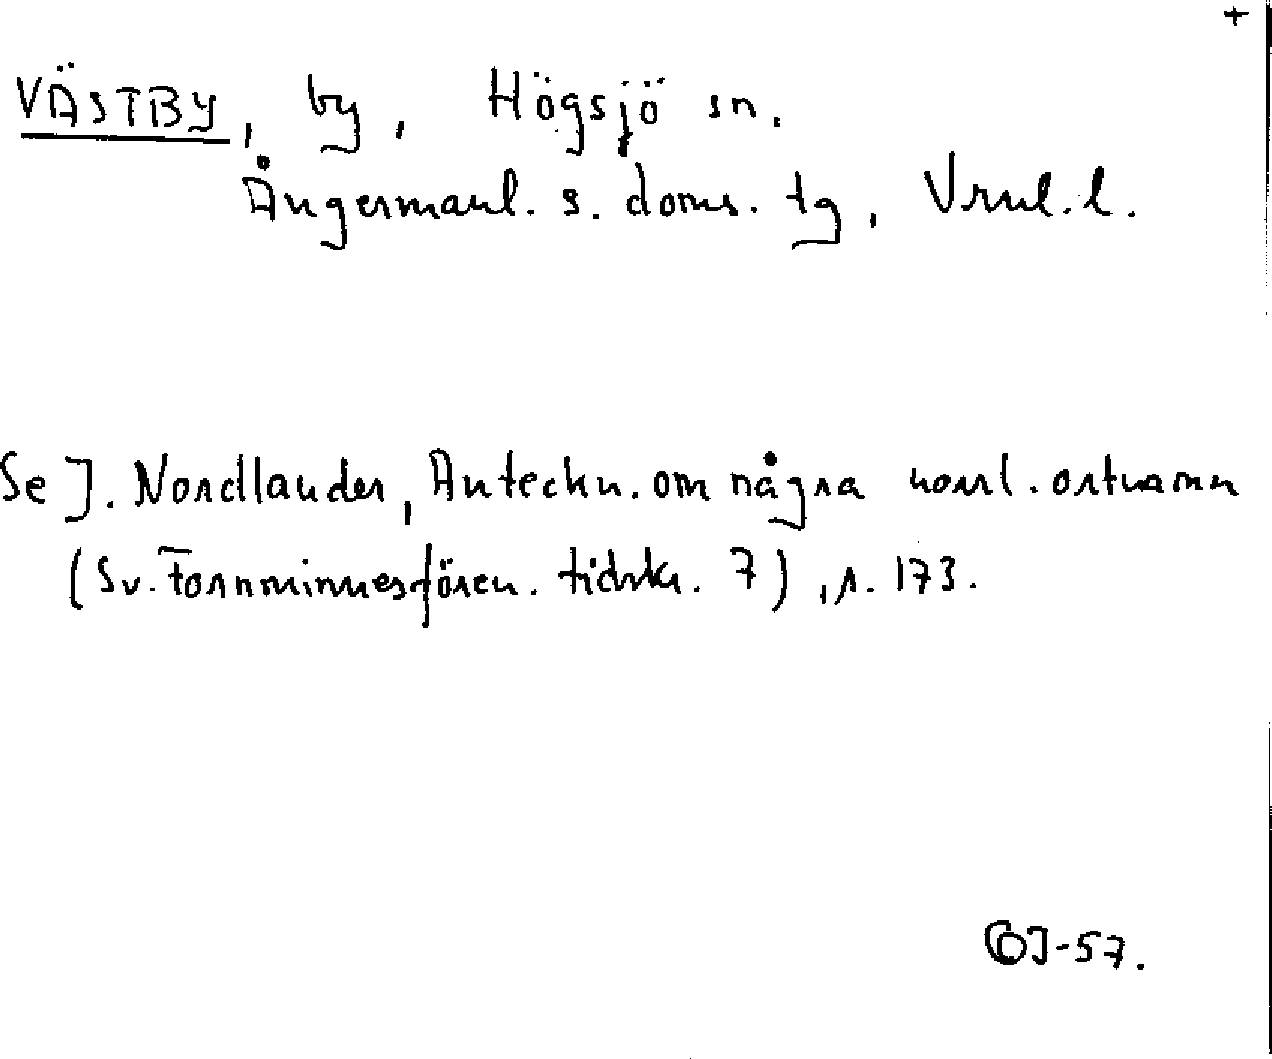 +
VÄSTBY, by, Högsjö sn.
Ångermanl. s. doms. tg, Vrnl. l.
Se J. Nordlander, Anteckn. om några norrl. ortnamn
(Sv. Fornminnesfören. tidskr. 7), s. 173.
-57.